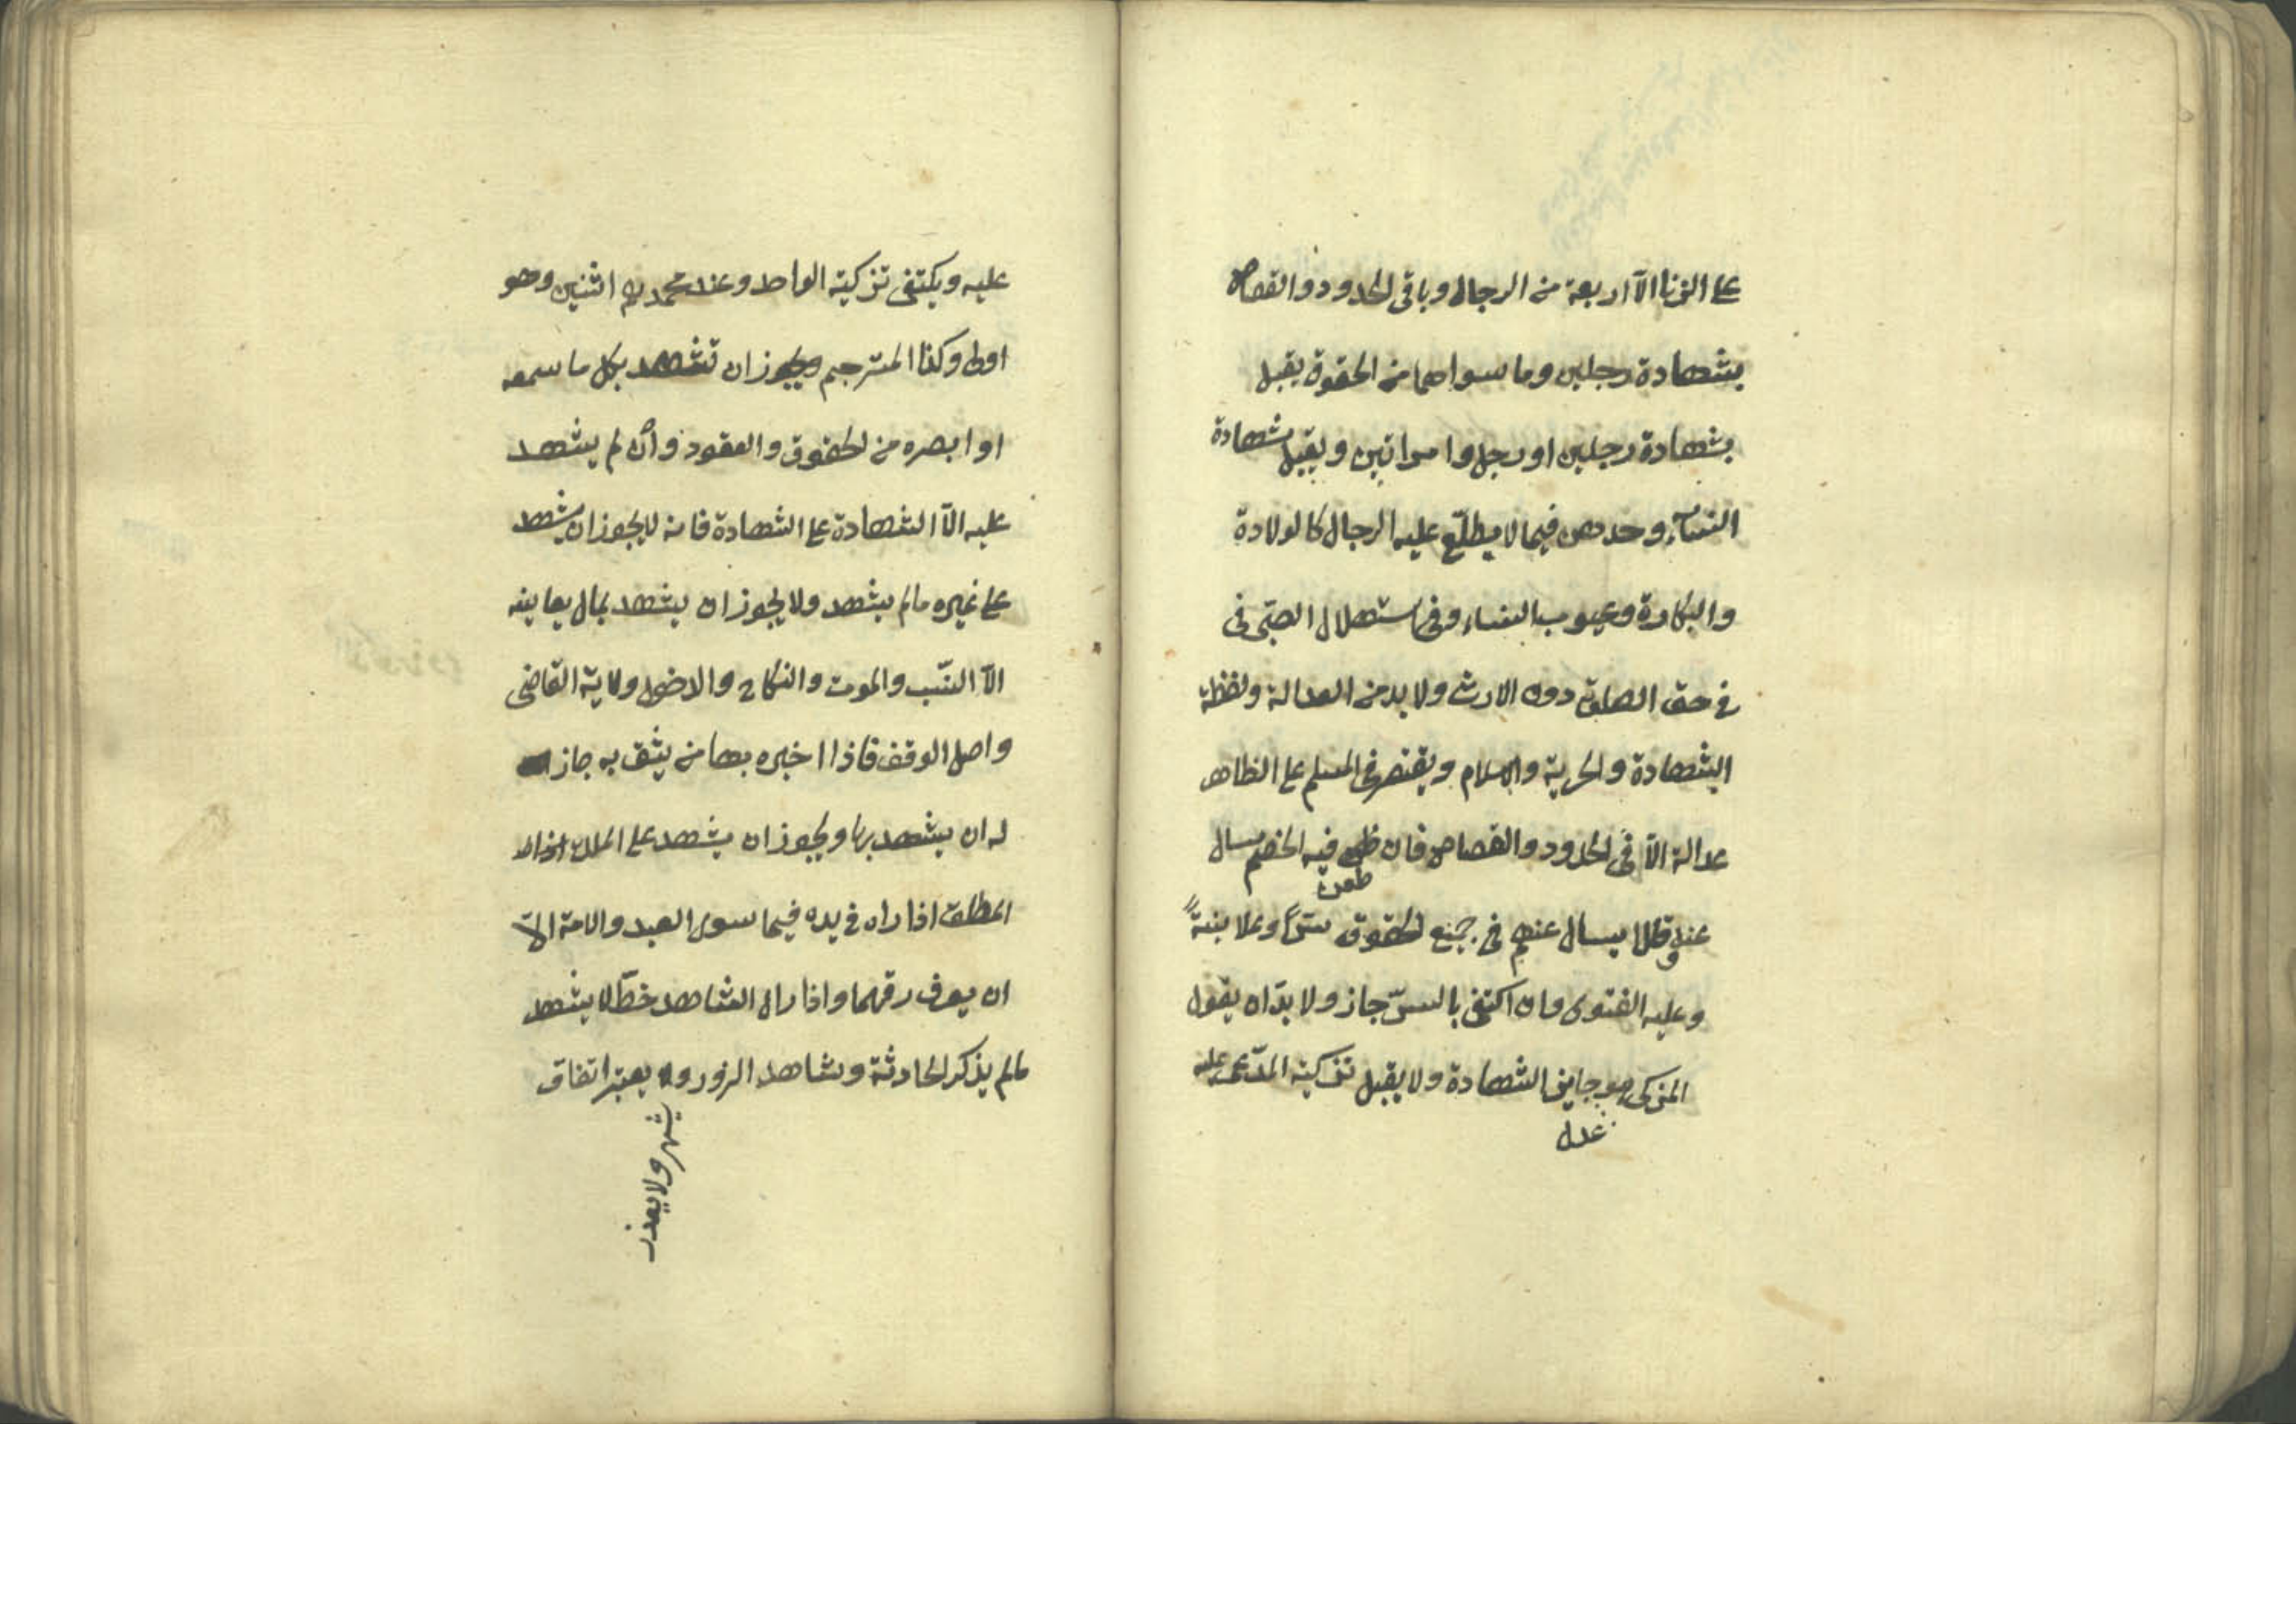 على الزنا الّا اربعة من الرجال وباقى الحدود والقصاص
بشهادة رجلين وما سواهما من الحقوق يقبل
بشهادة رجلين او رجل وامراتين ويقبل شهادة
النساء وحدهن فيما لا يطلّع عليه الرجال كالولادة
والبكارة وعيوب النساء وفى استهلال الصبّى فى
فى حق الصلوة دون الارث ولا بد من العدالة ولفظة
الشهادة والحرية والاسلام ويقتصر فى المسلم على الظاهر
عدالة الّا فى الحدود والقصاص فان طعن فيه الخصم يسال
طعن
عنه وقالا يسال عنهم فى جميع الحقوق سرّاً وعلانيةً
وعليه الفتوى وان اكتفى بالسرّ جاز ولا بدّ ان يقول
المزكى هو جايز الشهادة ولا يقبل تزكية المدّعى عليه
عدل
عليه ويكتفى تزكية الواحد وعند محمد رح اثنين وهو
اولى وكذا المترجم ويجوز ان تشهد بكل ما سمعه
او ابصره من الحقوق والعقود وان لم يشهد
عليه الّا الشهادة على الشهادة فانه لا يجوز ان يشهد
على غيره مالم يشهد ولا يجوز ان يشهد بمال يعاينه
الّا النّسب والموت والنكاح والدخول ولاية القاضى
واصل الوقف فاذا اخبره بها من يثق به جاز
له ان يشهد بها ويجوز ان يشهد على الملك
المطلق اذا راه فى يده فيما سوى العبد والامة الّا
ان يعرف رقهما واذا راى الشاهد خطّه لا يشهد
مالم يذكر الحادثة وشاهد الزور و يعتبر اتفاق
يشهر ولا يعذر